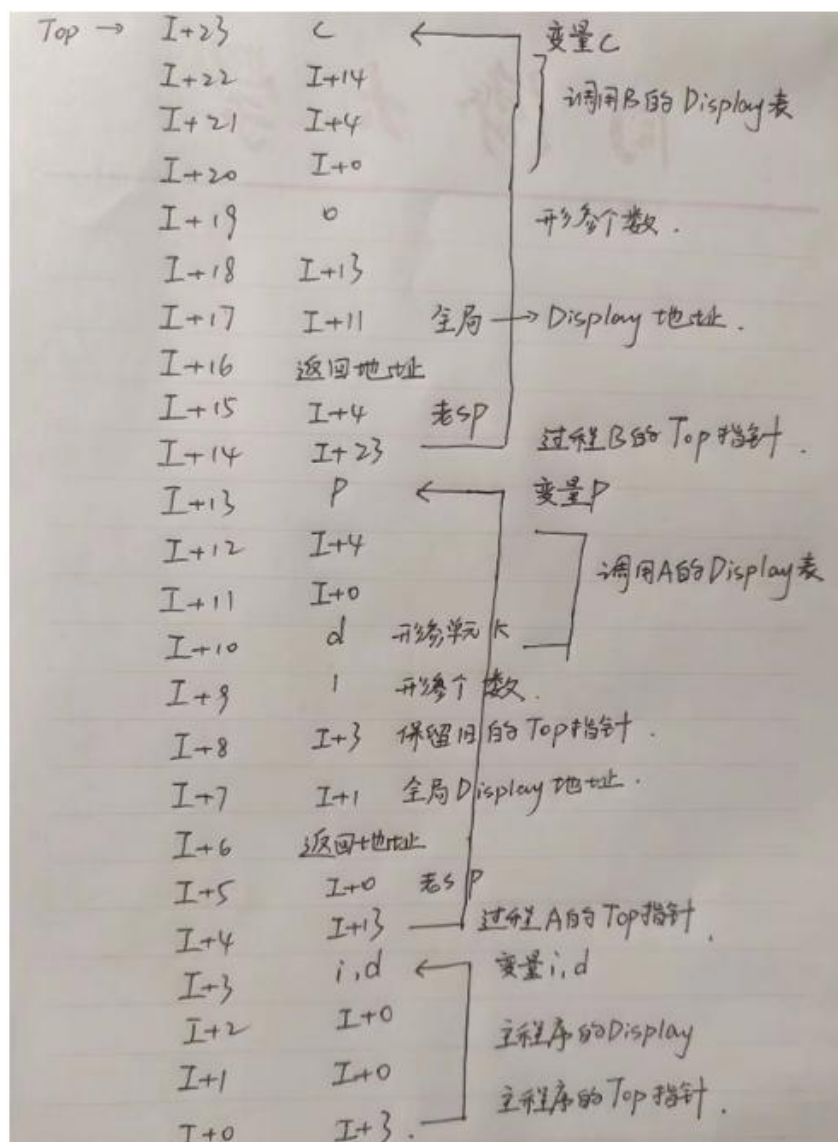 Top → I+23 C ← 变量C
I+22 I+14
I+21 I+4 调用B的Display表
I+20 I+0
I+19 0 形参个数.
I+18 I+13
I+17 I+11 全局 → Display地址.
I+16 返回地址
I+15 I+4 老sp
I+14 I+23 过程B的Top指针.
I+13 P ← 变量P
I+12 I+4
调用A的Display表
I+11 I+0
I+10 d 形参单元 k
I+9 1 形参个数.
I+8 I+3 保留旧的Top指针.
I+7 I+1 全局Display地址.
I+6 返回地址
I+5 I+0 老sp
I+4 I+13 过程A的Top指针.
I+3 i,d ← 变量i,d
I+2 I+0 主程序的Display
I+1 I+0
主程序的Top指针.
I+0 I+3.